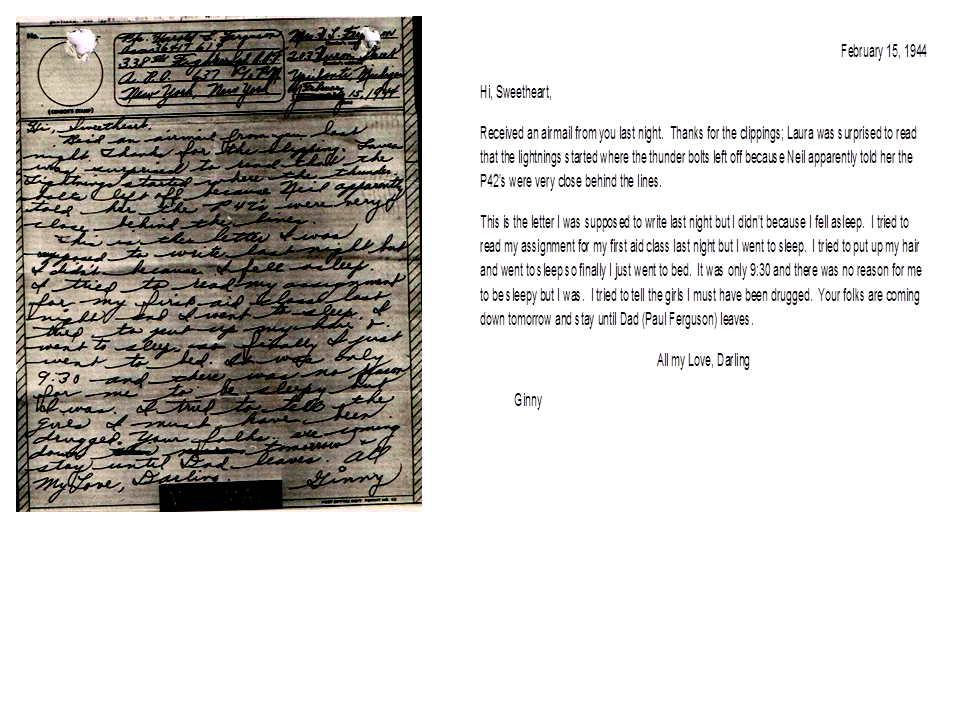 No.
(CENSOR'S STAMP)
Pfc. Harold L. Ferguson
338th
A.P.O. 637
New York, New York
15, 1944
Hi, Sweetheart.
Rec'd an airmail from you last
night. Thanks for the clipping. Laura
was surprised to read that the
lightnings started where the thunder
bolts left off because Neil apparently
told her the P47's were very
close behind the lines.
This is the letter I was
supposed to write last night but
I didn't because I fell asleep.
I tried to read my assignment
for my first aid class last
night and I went to sleep. I
tried to put up my hair &
went to sleep so finally I just
went to bed. It was only
9:30 and there was no reason
for me to be sleepy but
I was. I tried to tell the
girls I must have been
drugged. Your folks are coming
down tomorrow &
stay until Dad leaves. All
My Love, Darling. Ginny
February 15, 1944
Hi, Sweetheart,
Received an airmail from you last night. Thanks for the clippings; Laura was surprised to read
that the lightnings started where the thunder bolts left off because Neil apparently told her the
P42's were very close behind the lines.
This is the letter I was supposed to write last night but I didn't because I fell asleep. I tried to
read my assignment for my first aid class last night but I went to sleep. I tried to put up my hair
and went to sleep so finally I just went to bed. It was only 9:30 and there was no reason for me
to be sleepy but I was. I tried to tell the girls I must have been drugged. Your folks are coming
down tomorrow and stay until Dad (Paul Ferguson) leaves.
All my Love, Darling
Ginny